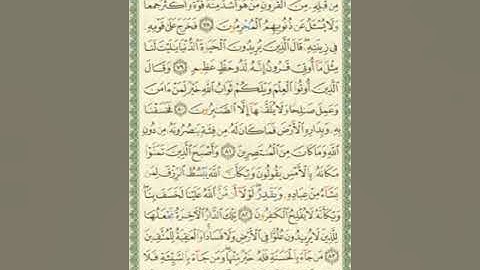 مِن قَبْلِهِۦ مِنَ ٱلْقُرُونِ مَنْ هُوَ أَشَدُّ مِنْهُ قُوَّةً وَأَكْثَرُ جَمْعًا
وَلَا يُسْـَٔلُ عَن ذُنُوبِهِمُ ٱلْمُجْرِمُونَ ٧٨ فَخَرَجَ عَلَىٰ قَوْمِهِۦ
فِى زِينَتِهِۦ قَالَ ٱلَّذِينَ يُرِيدُونَ ٱلْحَيَوٰةَ ٱلدُّنْيَا يَٰلَيْتَ لَنَا
مِثْلَ مَآ أُوتِىَ قَٰرُونُ إِنَّهُۥ لَذُو حَظٍّ عَظِيمٍ ٧٩ وَقَالَ
ٱلَّذِينَ أُوتُوا۟ ٱلْعِلْمَ وَيْلَكُمْ ثَوَابُ ٱللَّهِ خَيْرٌ لِّمَنْ ءَامَنَ
وَعَمِلَ صَٰلِحًا وَلَا يُلَقَّىٰهَآ إِلَّا ٱلصَّٰبِرُونَ ٨٠ فَخَسَفْنَا
بِهِۦ وَبِدَارِهِ ٱلْأَرْضَ فَمَا كَانَ لَهُۥ مِن فِئَةٍ يَنصُرُونَهُۥ مِن دُونِ
ٱللَّهِ وَمَا كَانَ مِنَ ٱلْمُنتَصِرِينَ ٨١ وَأَصْبَحَ ٱلَّذِينَ تَمَنَّوْا۟
مَكَانَهُۥ بِٱلْأَمْسِ يَقُولُونَ وَيْكَأَنَّ ٱللَّهَ يَبْسُطُ ٱلرِّزْقَ لِمَن
يَشَآءُ مِنْ عِبَادِهِۦ وَيَقْدِرُ لَوْلَآ أَن مَّنَّ ٱللَّهُ عَلَيْنَا لَخَسَفَ بِنَا
وَيْكَأَنَّهُۥ لَا يُفْلِحُ ٱلْكَٰفِرُونَ ٨٢ تِلْكَ ٱلدَّارُ ٱلْءَاخِرَةُ نَجْعَلُهَا
لِلَّذِينَ لَا يُرِيدُونَ عُلُوًّا فِى ٱلْأَرْضِ وَلَا فَسَادًا وَٱلْعَٰقِبَةُ لِلْمُتَّقِينَ
٨٣ مَن جَآءَ بِٱلْحَسَنَةِ فَلَهُۥ خَيْرٌ مِّنْهَا وَمَن جَآءَ بِٱلسَّيِّئَةِ فَلَا